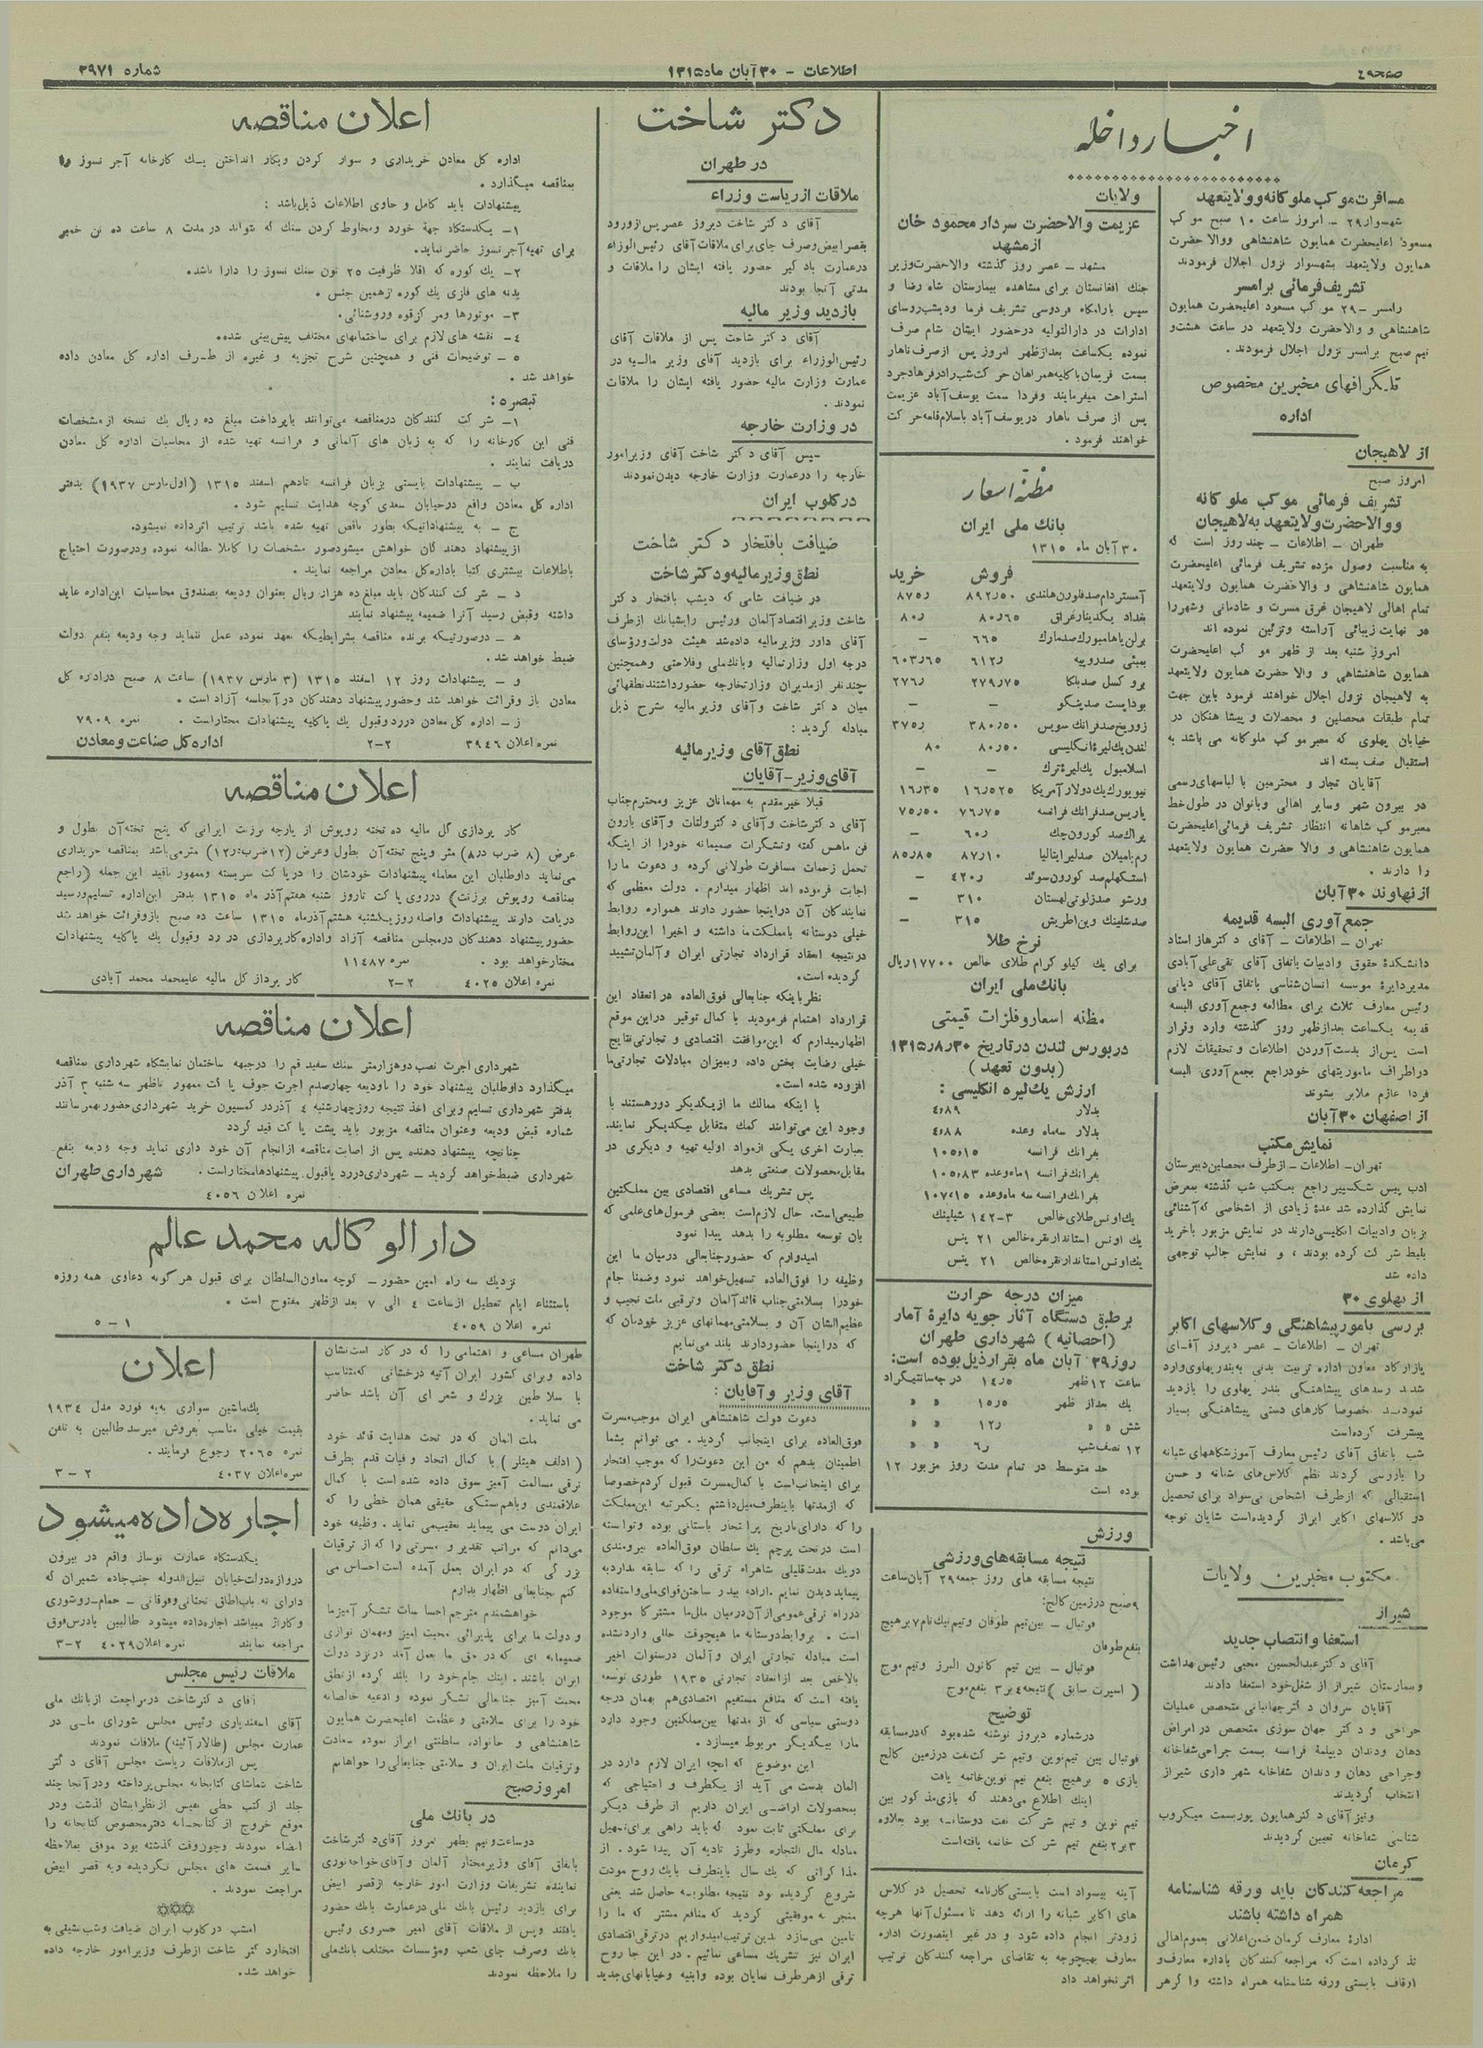 صفحه ٤
اطلاعات - ٣٠ آبان ماه ١٣١٥
شماره ٣٩٧١
اخبار داخله
مسافرت موکب ملوکانه و ولایتعهد
شهسوار ٢٩ – امروز ساعت ١٠ صبح موکب
مسعود اعلیحضرت همایون شاهنشاهی ووالا حضرت
همایون ولایتعهد بشهسوار نزول اجلال فرمودند
تشریف فرمائی برامسر
رامسر – ٢٩ موکب مسعود اعلیحضرت همایون
شاهنشاهی و والاحضرت ولایتعهد در ساعت هشت و
نیم صبح برامسر نزول اجلال فرمودند.
تلگرافهای مخبرین مخصوص
اداره
از لاهیجان
امروز صبح
تشریف فرمائی موکب ملوکانه
ووالاحضرت ولایتعهد به لاهیجان
طهران – اطلاعات – چند روز است که
به مناسبت وصول مژده تشریف فرمائی اعلیحضرت
همایون شاهنشاهی و والا حضرت همایون ولایتعهد
تمام اهالی لاهیجان غرق مسرت و شادمانی وشهررا
در نهایت زیبائی آراسته وتزئین نموده اند
امروز شنبه بعد از ظهر مو کب اعلیحضرت
همایون شاهنشاهی و والا حضرت همایون ولایتعهد
به لاهیجان نزول اجلال خواهند فرمود باین جهت
تمام طبقات محصلین و محصلات و پیشا هنگان در
خیابان پهلوی که معبر مو کب ملوکانه می باشد به
استقبال صف بسته اند
آقایان تجار و محترمین با لباسهای رسمی
در بیرون شهر وسایر اهالی وبانوان در طول خط
معبر مو کب شاهانه انتظار تشریف فرمائی اعلیحضرت
همایون شاهنشاهی و والا حضرت همایون ولایتعهد
را دارند .
از نهاوند ٣٠ آبان
جمع آوری البسه قدیمه
تهران – اطلاعات – آقای دکتر هاز استاد
دانشکدهٔ حقوق وادبیات باتفاق آقای تقی علی آبادی
مدیر دایرهٔ موسسه انسان شناسی باتفاق آقای دیانی
رئیس معارف ثلاث برای مطالعه وجمع آوری البسه
قدیمه یکساعت بعدازظهر روز گذشته وارد وقرار
است پس از بدست آوردن اطلاعات و تحقیقات لازم
دراطراف ماموریتهای خودراجع بجمع آوری البسه
فردا عازم ملایر بشوند
از اصفهان ٣٠ آبان
نمایش مکتب
تهران – اطلاعات – ازطرف محصلین دبیرستان
ادب پیس شکسپیر راجع بمکتب شب گذشته بمعرض
نمایش گذارده شد عدهٔ زیادی از اشخاصی که آشنائی
بزبان وادبیات انگلیسی دارند در نمایش مزبور باخرید
بلیط شرکت کرده بودند ، و نمایش جالب توجهی
داده شد
از پهلوی ٣٠
بررسی بامور پیشاهنگی و کلاسهای اکابر
تهران – اطلاعات – عصر دیروز آقای
بازارکاد معاون اداره تربیت بدنی به بندر پهلوی وارد
شدند رسدهای پیشاهنگی بندر پهلوی را بازدید
نمودند خصوصا کارهای دستی پیشاهنگی بسیار
پیشرفت کرده است
شب باتفاق آقای رئیس معارف آموزشگاههای شبانه
را بازرسی کردند نظم کلاس های شبانه و حسن
استقبالی که ازطرف اشخاص بی سواد برای تحصیل
در کلاسهای اکابر ابراز گردیده است شایان توجه
می باشد .
مکتوب مخبرین ولایات
شیراز
استعفا وانتصاب جدید
آقای دکتر عبدالحسین محبی رئیس بهداشت
وبیمارستان شیراز از شغل خود استعفا دادند
آقایان سروان دکتر جهانبانی متخصص عملیات
جراحی و دکتر جهان سوزی متخصص در امراض
دهان ودندان دیپلمهٔ فرانسه بسمت جراحی شفاخانه
وجراحی دهان و دندان شفاخانه شهرداری شیراز
انتخاب گردیدند
ونیز آقای دکتر همایون پور بسمت میکروب
شناسی شفاخانه تعیین گردیدند
کرمان
مراجعه کنندگان باید ورقه شناسنامه
همراه داشته باشند
ادارهٔ معارف کرمان ضمن اعلانی بعموم اهالی
تذکر داده است که مراجعه کنندگان باداره معارف و
اوقاف بایستی ورقه شناسنامه همراه داشته واگر هر
ولایات
عزیمت والاحضرت سردار محمود خان
از مشهد
مشهد – عصر روز گذشته والاحضرت وزیر
جنگ افغانستان برای مشاهده بیمارستان شاه رضا و
سپس بارامگاه فردوسی تشریف فرما ودیشب روسای
ادارات در دارالتولیه درحضور ایشان شام صرف
نموده یکساعت بعدازظهر امروز پس از صرف ناهار
بسمت فریمان باکلیه همراهان حرکت شب را درفرهادجرد
استراحت میفرمایند وفردا سمت یوسف آباد عزیمت
پس از صرف ناهار دریوسف آباد باسلام قلعه حرکت
خواهند فرمود .
مظنه اسعار
بانک ملی ایران
٣٠ آبان ماه ١٣١٥
فروش خرید
آمستردام صد فلورن هلندی ٨٩٢٫٥٠ ٨٧٥٫
بغداد یکدینار عراق ٨٠٫٦٥ ٨٠٫
برلن یا هامبورک صدمارک ٦٦٥ –
بمبئی صدروپیه ٦١٢٫ ٦٠٣٫٦٥
بروکسل صدبلکا ٢٧٩٫٧٥ ٢٧٦٫
بوداپست صدپنگو – –
زوریخ صدفرانک سویس ٣٨٠٫٥٠ ٣٧٥٫
لندن یک لیرهٔ انگلیسی ٨٠٫٥٠ ٨٠
اسلامبول یک لیرهٔ ترک – –
نیویورک یک دولار آمریکا ١٦٫٥٢٥ ١٦٫٣٥
پاریس صدفرانک فرانسه ٧٦٫٧٥ ٧٥٫٥٠
پراک صد کورون چک ٦٠٫ –
رم یامیلان صدلیرایتالیا ٨٧٫١٠ ٨٥٫٨٥
استکهلم صد کورون سوئد ٤٢٠٫ –
ورشو صدزلوتی لهستان ٣١٠ –
صدشلینک وین اطریش ٣١٥ –
نرخ طلا
برای یک کیلو گرام طلای خالص ١٧٧٠٠ ریال
بانک ملی ایران
مظنه اسعار و فلزات قیمتی
در بورس لندن در تاریخ ١٣١٥٫٨٫٣٠
(بدون تعهد)
ارزش یک لیره انگلیسی :
بدلار ٤٫٨٩
بدلار سه ماه وعده ٤٫٨٨
بفرانک فرانسه ١٠٥٫١٥
بفرانک فرانسه ١ ماه وعده ١٠٥٫٨٣
بفرانک فرانسه سه ماه وعده ١٠٧٫١٥
یک اونس طلای خالص ١٤٢-٣ شیلینک
یک اونس استاندارد نقره خالص ٢١ پنس
یک اونس استاندارد نقره خالص ٢١ پنس
میزان درجه حرارت
بر طبق دستگاه آثار جویه دایرهٔ آمار
(احصائیه) شهرداری طهران
روز ٢٩ آبان ماه بقرار ذیل بوده است:
ساعت ١٢ ظهر ١٤٫٥ درجه سانتیگراد
یک بعداز ظهر ١٥٫٥ » »
شش » » ١٢٫ » »
١٢ نصف شب ٦٫ » »
حد متوسط در تمام مدت روز مزبور ١٢
بوده است
ورزش
نتیجه مسابقه های ورزشی
نتیجه مسابقه های روز جمعه ٢٩ آبان ساعت
٩ صبح درزمین کالج:
فوتبال – بین تیم طوفان وتیم نیک نام ٧ بر هیچ
بنفع طوفان
فوتبال – بین تیم کانون البرز وتیم موج
( اسپرت سابق ) نتیجه ٤ بر ٣ بنفع موج
توضیح
درشماره دیروز نوشته شده بود که درمسابقه
فوتبال بین تیم نوین وتیم شرکت نفت درزمین کالج
بازی ٥ بر هیچ بنفع تیم نوین خاتمه یافت
اینک اطلاع می دهند که بازی مذکور بین
تیم نوین و تیم شرکت نفت دوستانه بود بعلاوه
٣ بر ٢ بنفع تیم شرکت خاتمه یافته است
آینه بیسواد است بایستی کارنامه تحصیل در کلاس
های اکابر شبانه را ارائه دهد تا مسئول آنها هرچه
زودتر انجام داده شود و در غیر اینصورت اداره
معارف بهیچوجه به تقاضای مراجعه کنندگان ترتیب
اثر نخواهد داد
دکتر شاخت
در طهران
ملاقات از ریاست وزراء
آقای دکتر شاخت دیروز عصر پس ازورود
بقصر ابیض وصرف چای برای ملاقات آقای رئیس الوزراء
درعمارت بادگیر حضور یافته ایشان را ملاقات و
مدتی آنجا بودند
بازدید وزیر مالیه
آقای دکتر شاخت پس از ملاقات آقای
رئیس الوزراء برای بازدید آقای وزیر مالیه در
عمارت وزارت مالیه حضور یافته ایشان را ملاقات
نمودند .
در وزارت خارجه
سپس آقای دکتر شاخت آقای وزیر امور
خارجه را درعمارت وزارت خارجه دیدن نمودند
در کلوپ ایران
ضیافت بافتخار دکتر شاخت
نطق وزیر مالیه و دکتر شاخت
در ضیافت شامی که دیشب بافتخار دکتر
شاخت وزیر اقتصاد آلمان ورئیس رایشبانک ازطرف
آقای داور وزیر مالیه داده شد هیئت دولت ورؤسای
درجه اول وزارتمالیه وبانک ملی وفلاحتی وهمچنین
چند نفر از مدیران وزارتخارجه حضور داشتند نطقهائی
میان دکتر شاخت و آقای وزیر مالیه بشرح ذیل
مبادله گردید :
نطق آقای وزیر مالیه
آقای وزیر – آقایان
قبلا خیر مقدم به مهمانان عزیز ومحترم جناب
آقای دکتر شاخت و آقای دکتر ولتات و آقای بارون
فن ماهس گفته وتشکرات صمیمانه خودرا از اینکه
تحمل زحمات مسافرت طولانی کرده و دعوت ما را
اجابت فرموده اند اظهار میدارم . دولت معظمی که
نمایندگان آن دراینجا حضور دارند همواره روابط
خیلی دوستانه بامملکت ما داشته و اخیرا این روابط
درنتیجه انعقاد قرارداد تجارتی ایران و آلمان تشیید
گردیده است .
نظر باینکه جنابعالی فوق العاده در انعقاد این
قرارداد اهتمام فرمودید با کمال توقیر دراین موقع
اظهار میدارم که این موافقت اقتصادی و تجارتی نتایج
خیلی رضایت بخش داده وبمیزان مبادلات تجارتی ما
افزوده شده است .
با اینکه ممالک ما ازیکدیگر دور هستند با
وجود این می توانند کمک متقابل بیکدیگر نمایند.
بعبارت اخری یکی از مواد اولیه تهیه و دیگری در
مقابل محصولات صنعتی بدهد
پس تشریک مساعی اقتصادی بین مملکتین
طبیعی است. حال لازم است بعضی فرمول های علمی که
بآن توسعه مطلوبه را بدهد پیدا نمود
امیدوارم که حضور جنابعالی درمیان ما این
وظیفه را فوق العاده تسهیل خواهد نمود وضمنا جام
خودرا بسلامتی جناب قائد آلمان وترقی ملت نجیب و
عظیم الشان آن و بسلامتی مهمانهای عزیز خودمان که
که دراینجا حضور دارند بلند می نمایم
نطق دکتر شاخت
آقای وزیر و آقایان :
دعوت دولت شاهنشاهی ایران موجب مسرت
فوق العاده برای اینجانب گردید. می توانم بشما
اطمینان بدهم که من این دعوت را که موجب افتخار
برای اینجانب است با کمال مسرت قبول کردم خصوصا
که ازمدتها باینطرف میل داشتم یکمرتبه این مملکت
را که دارای تاریخ پر افتخار باستانی بوده وتوانسته
است درتحت پرچم یک سلطان فوق العاده نیرومندی
دریک مدت قلیلی شاهراه ترقی را که سابقه ندارد به
پیماید دیدن نمایم. اراده بیدار ساختن قوای ملی واستفاده
درراه ترقی عمومی از آن درمیان ملل ما مشترکا موجود
است . بروابط دوستانه ما هیچوقت خللی وارد نشده
است مبادله تجارتی ایران و آلمان درسنوات اخیر
بالاخص بعد از انعقاد تجارتی ١٩٣٥ طوری توسعه
یافته است که منافع مستقیم اقتصادی هم بهمان درجه
دوستی سیاسی که از مدتها بین مملکتین وجود دارد
مارا بیکدیگر مربوط میسازد .
این موضوع که آنچه ایران لازم دارد در
آلمان بدست می آید از یکطرف و احتیاجی که
بمحصولات اراضی ایران داریم از طرف دیگر
برای مملکتی ثابت نمود که باید راهی برای تسهیل
مبادله مال التجاره وطرز تادیه آن پیدا شود . از
مذاکراتی که یک سال باینطرف بایک روح مودت
شروع گردیده بود نتیجه مطلوبه حاصل شد یعنی
منجر به موفقیتی گردید که منافع مشترک ما را
تامین می سازد بدین ترتیب امیدواریم درترقی اقتصادی
ایران نیز تشریک مساعی نمائیم . در این جا روح
ترقی ازهر طرف نمایان بوده وابنیه وخیابانهای جدید
طهران مساعی و اهتمامی را که در کار است نشان
داده وبرای کشور ایران آتیه درخشانی که متناسب
با سلاطین بزرک و شعرای آن باشد حاضر
می نماید .
ملت آلمان که در تحت هدایت قائد خود
( ادلف هیتلر ) با کمال اتحاد و ثبات قدم بطرف
ترقی مسالمت آمیز سوق داده شده است با کمال
علاقمندی وباهم بستگی حقیقی همان خطی را که
ایران دوست می پیماید تعقیب می نماید . وظیفه خود
می دانم که مراتب تقدیر و مسرتی را که از ترقیات
بزرگی که در ایران بعمل آمده است احساس می
کنم بجنابعالی اظهار بدارم
خواهشمندم مترجم احساسات تشکر آمیز ما
و دولت ما برای پذیرائی محبت آمیز و مهمان نوازی
صمیمانه ای که در حق ما بعمل آمد در نزد دولت
ایران باشند . اینک جام خود را بلند کرده از نطق
محبت آمیز جنابعالی تشکر نموده و ادعیه خالصانه
خود را برای سلامتی و عظمت اعلیحضرت همایون
شاهنشاهی و خانواده سلطنتی ابراز نموده سعادت
وترقیات ملت ایران و سلامتی جنابعالی را خواهانم
امروز صبح
در بانک ملی
دوساعت ونیم بظهر امروز آقای دکتر شاخت
باتفاق آقای وزیر مختار آلمان و آقای خواجه نوری
نماینده تشریفات وزارت امور خارجه از قصر ابیض
برای بازدید رئیس بانک ملی درعمارت بانک حضور
یافتند وپس از ملاقات آقای امیر خسروی رئیس
بانک وصرف چای شعب ومؤسسات مختلف بانک ملی
را ملاحظه نمودند
اعلان مناقصه
اداره کل معادن خریداری و سوار کردن وبکار انداختن یک کارخانه آجر نسوز را
بمناقصه میگذارد .
پیشنهادات باید کامل و حاوی اطلاعات ذیل باشد :
١- یکدستگاه جهة خورد ومخلوط کردن سنک که بتواند در مدت ٨ ساعت ده تن خمیر
برای تهیه آجر نسوز حاضر نماید.
٢- یک کوره که اقلا ظرفیت ٢٥ تون سنک نسوز را دارا باشد.
بدنه های فلزی یک کوره ازهمین جنس .
٣- موتورها ومرکز قوه وروشنائی.
٤- نقشه های لازم برای ساختمانهای مختلف پیش بینی شده.
٥- توضیحات فنی و همچنین شرح تجزیه و غیره از طرف اداره کل معادن داده
خواهد شد .
تبصره :
١- شرکت کنندگان درمناقصه می توانند باپرداخت مبلغ ده ریال یک نسخه ازمشخصات
فنی این کارخانه را که به زبان های آلمانی و فرانسه تهیه شده از محاسبات اداره کل معادن
دریافت نمایند .
ب – پیشنهادات بایستی بزبان فرانسه تادهم اسفند ١٣١٥ (اول مارس ١٩٣٧) بدفتر
اداره کل معادن واقع درخیابان سعدی کوچه هدایت تسلیم شود .
ج – به پیشنهاداتیکه بطور ناقص تهیه شده باشد ترتیب اثر داده نمیشود.
از پیشنهاد دهندگان خواهش میشود صور مشخصات را کاملا مطالعه نموده ودرصورت احتیاج
باطلاعات بیشتری کتبا باداره کل معادن مراجعه نمایند .
د – شرکت کنندگان باید مبلغ ده هزار ریال بعنوان ودیعه بصندوق محاسبات این اداره عاید
داشته وقبض رسید آنرا ضمیمه پیشنهاد نمایند
ه – درصورتیکه برنده مناقصه بشرایطیکه تعهد نموده عمل ننماید وجه ودیعه بنفع دولت
ضبط خواهد شد .
و – پیشنهادات روز ١٢ اسفند ١٣١٥ (٣ مارس ١٩٣٧) ساعت ٨ صبح دراداره کل
معادن باز وقرائت خواهد شد وحضور پیشنهاد دهندگان درآنجلسه آزاد است .
ز – اداره کل معادن دررد وقبول یک یاکلیه پیشنهادات مختار است . نمره ٧٩٠٩
نمره اعلان ٣٩٤٦ ٢-٢ اداره کل صناعت و معادن
اعلان مناقصه
کار پردازی کل مالیه ده تخته روپوش از پارچه برزنت ایرانی که پنج تخته آن بطول و
عرض (٨ ضرب در ٨) متر وپنج تخته آن بطول وعرض (١٢ ضرب در ١٢) متر می باشد بمناقصه خریداری
می نماید داوطلبان این معامله پیشنهادات خودشان را درپاکت سربسته وممهور باقید این جمله (راجع
بمناقصه روپوش برزنت) درروی پاکت تا روز شنبه هفتم آذر ماه ١٣١٥ بدفتر این اداره تسلیم ورسید
دریافت دارند پیشنهادات واصله روز یکشنبه هشتم آذرماه ١٣١٥ ساعت ده صبح باز وقرائت خواهد شد
حضور پیشنهاد دهندگان درمجلس مناقصه آزاد واداره کار پردازی در رد وقبول یک یاکلیه پیشنهادات
مختار خواهد بود . نمره ١١٤٨٧
نمره اعلان ٤٠٢٥ ٢-٢ کار پرداز کل مالیه علیمحمد محمد آبادی
اعلان مناقصه
شهرداری اجرت نصب دوهزار متر سنک سفید قم را درجبهه ساختمان نمایشگاه شهرداری بمناقصه
میگذارد داوطلبان پیشنهاد خود را باودیعه چهارصدم اجرت جوف پاکت ممهور تاظهر سه شنبه ٣ آذر
بدفتر شهرداری تسلیم وبرای اخذ نتیجه روز چهارشنبه ٤ آذر در کمسیون خرید شهرداری حضور بهمرسانند
شماره قبض ودیعه وعنوان مناقصه مزبور باید پشت پاکت قید گردد
چنانچه پیشنهاد دهنده پس از اصابت مناقصه از انجام آن خود داری نماید وجه ودیعه بنفع
شهرداری ضبط خواهد گردید – شهرداری دررد یاقبول پیشنهادها مختار است . شهرداری طهران
نمره اعلان ٤٠٥٦
دارالوکاله محمد عالم
نزدیک سه راه امین حضور – کوچه معاون السلطان برای قبول هرگونه دعاوی همه روزه
باستثناء ایام تعطیل از ساعت ٤ الی ٧ بعد ازظهر مفتوح است .
نمره اعلان ٤٠٥٩ ١-٥
اعلان
یک ماشین سواری به به فورد مدل ١٩٣٤
بقیمت خیلی مناسب بفروش میرسد طالبین به تلفن
نمره ٢٠٦٥ رجوع فرمایند .
نمره اعلان ٤٠٣٧ ٢-٣
اجاره داده میشود
یکدستگاه عمارت نوساز واقع در بیرون
دروازه دولت خیابان نبیل الدوله جنب جاده شمیران که
دارای نه باب اطاق تحتانی وفوقانی – حمام – روشوری
وگاراژ میباشد اجاره داده میشود طالبین بآدرس فوق
مراجعه نمایند نمره اعلان ٤٠٢٩ ٢-٣
ملاقات رئیس مجلس
آقای دکتر شاخت درمراجعت از بانک ملی
آقای اسفندیاری رئیس مجلس شورای ملی در
عمارت مجلس (طالار آئینه) ملاقات نمودند
پس از ملاقات ریاست مجلس آقای دکتر
شاخت بتماشای کتابخانه مجلس پرداخته ودر آنجا چند
جلد از کتب خطی نفیس از نظر ایشان گذشت ودر
موقع خروج از کتابخانه دفتر مخصوص کتابخانه را
امضاء نمودند وچون وقت گذشته بود موفق بملاحظه
سایر قسمت های مجلس نگردیده وبه قصر ابیض
مراجعت نمودند .
امشب در کلوب ایران ضیافت وشب نشینی به
افتخار دکتر شاخت ازطرف وزیر امور خارجه داده
خواهد شد.